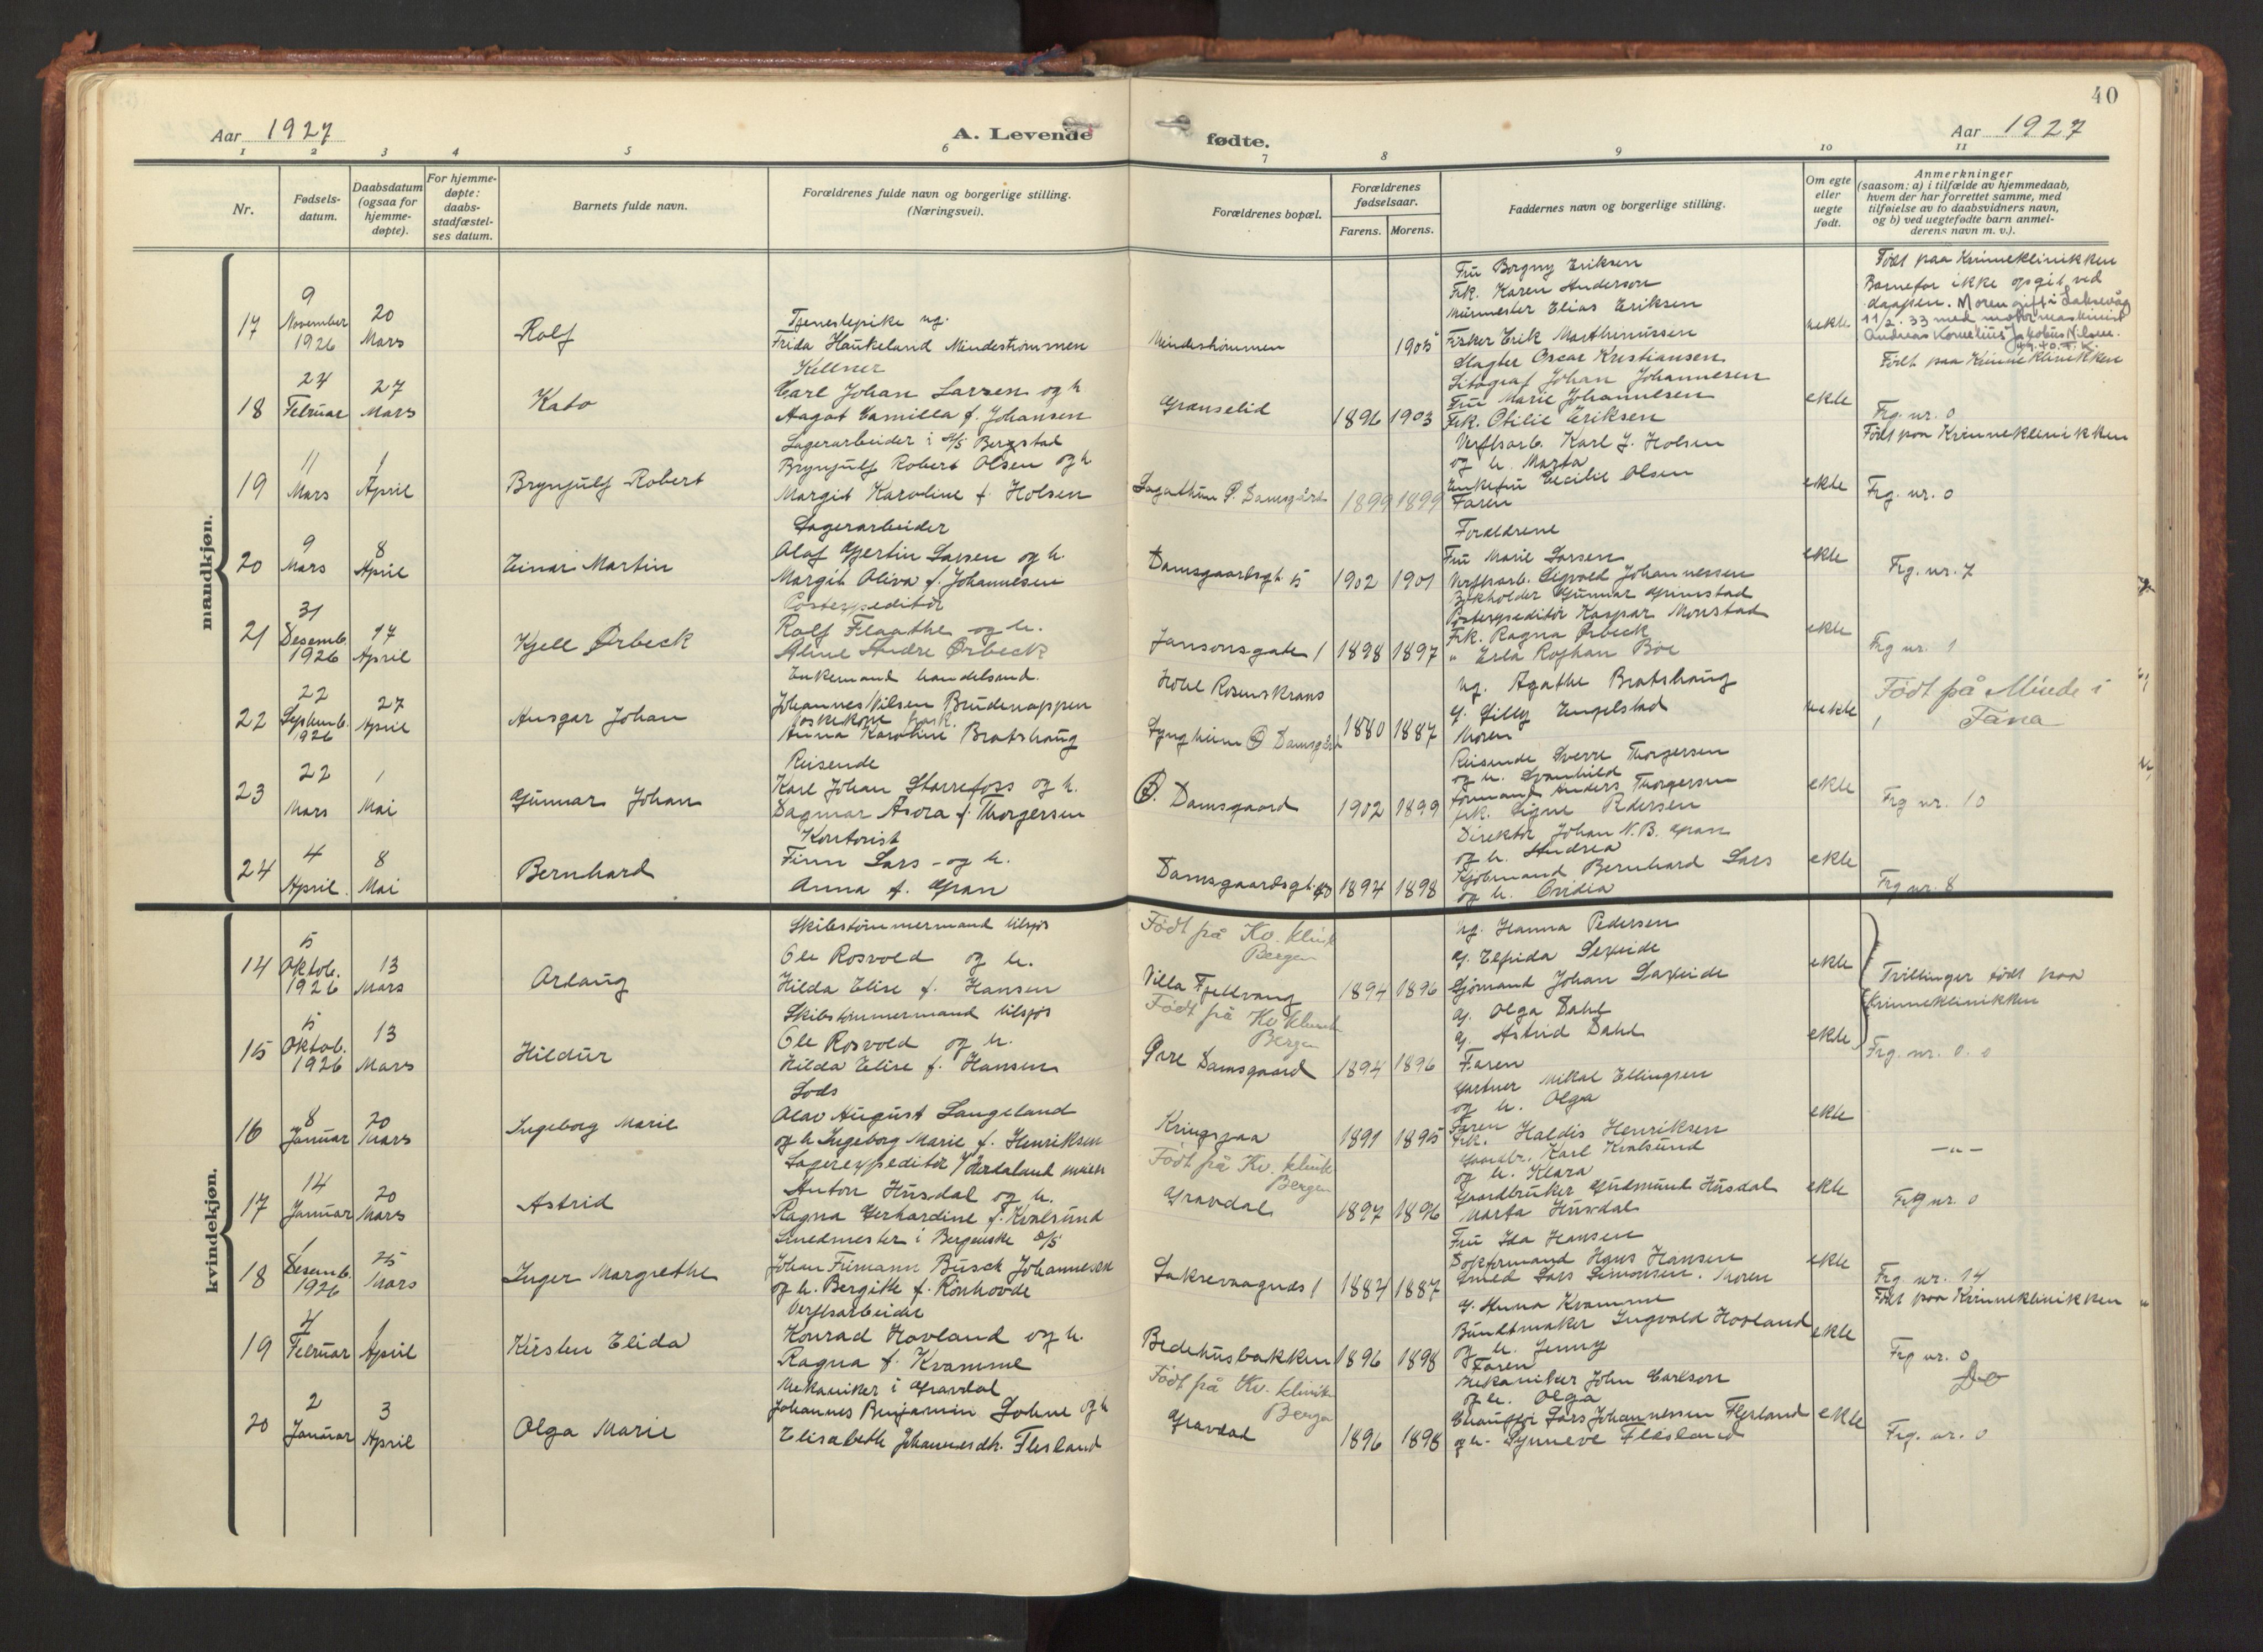 40
Aar 1927
A. Levende
fødte.
Aar 1927
1 2 3 4 5 6 7 8 9 10 11
Nr.
Fødsels-
datum.
Daabsdatum
(ogsaa for
hjemme-
døpte).
For hjemme-
døpte:
daabs-
stadfæstel-
ses datum.
Barnets fulde navn.
Forældrenes fulde navn og borgerlige stilling.
(Næringsvei).
Forældrenes bopæl.
Forældrenes
fødselsaar.
Farens. Morens.
Faddernes navn og borgerlige stilling.
Om egte
eller
uegte
født.
Anmerkninger
(saasom: a) i tilfælde av hjemmedaab,
hvem der har forrettet samme, med
tilføielse av to daabsvidners navn,
og b) ved uegtefødte barn anmel-
derens navn m. v.).
mandkjøn.
17
9
November
1926
20
Mars
Rolf
Tjenestepike ug.
Frida Haukeland Mindestrømmen
Mindestrømmen
1905
Fru Borgny Eriksen
Frk. Karen Anderson
Murmester Elias Eriksen
Fisker Erik Marthinussen
Slagter Oscar Kristiansen
uekte
Født paa Kvinneklinikken
Barnefar ikke opgit ved
daapen. Moren gift i Laksevåg
11/2. 33 med motormaskinist
Andreas Kornelius Jakobus Nilsen.
18
24
Februar
27
Mars
Kato
Kellner
Carl Johan Larsen og h
Aagot Camilla f. Johansen
Grænselid
1896 1903
Litograf Johan Johannesen
Fru Marie Johannesen
Frk. Otilie Eriksen
ekte
Født paa Kvinneklinikken
Frg. nr. 0
19
11
Mars
1
April
Brynjulf Robert
Lagerarbeider i A/S Bergstad
Brynjulf Robert Olsen og h
Margit Karoline f. Holsen
Lagathun P. Damsgård
1899 1899
Verftsarb. Karl J. Holsen
og h. Marta
Enkefru Cecilie Olsen
Faren
ekte
Født paa Kvinneklinikken
Frg. nr. 0
20
9
Mars
8
April
Einar Martin
Lagerarbeider
Olaf Gjertin Larsen og h.
Margit Oliva f. Johannesen
Damsgaardsgt. 15
1902 1901
Forældrene
Fru Marie Larsen
Verftsarb. Sigvald Johannessen
ekte
Frg. nr. 7
21
31
Desemb.
1926
17
April
Kjell Ørbeck
Postexpeditør
Rolf Flaathe og h.
Aline Andre Ørbeck
Jansonsgate 1
1898 1897
Bokholder Gunnar Grimstad
Postexpeditør Kaspar Monstad
Frk. Ragna Ørbeck
" Erla Rojhan Boe
ekte
Frg nr. 1
22
22
Septemb.
1926
27
April
Ansgar Johan
Enkemand handelsmd.
Johannes Nilsen Brudenappen
Anna Karoline Bratshaug
Hotel Rosenskrans
Lyngheim Ø Damsgård
1880 1887
ug. Agathe Bratshaug
g. Lilly Engelstad
Moren
uekte
Født på Minde i
Fana
1
23
22
Mars
1
Mai
Gunnar Johan
Reisende
Karl Johan Starrefoss og h.
Dagmar Asora f. Thorgersen
Ø. Damsgaard
1902 1899
Reisende Sverre Thorgersen
og h. Svanhild
formand Anders Thorgersen
frk. Signe Pedersen
ekte
Frg nr. 10
24
4
April
8
Mai
Bernhard
Kontorist
Finn Lars - og h.
Anna f. Gran
Damsgaardsgt. 40
1894 1898
Direktør Johan N. B. Gran
og h. Andrea
Kjøbmand Bernhard Lars
og h. Ovidia
ekte
Frg nr. 8
kvindekjøn.
14
5
Oktob.
1926
13
Mars
Arlaug
Skibstømmermand tilsjøs
Ole Rosvold og h.
Hilda Elise f. Hansen
Født på Kv. klinik
Bergen
Villa Fjellvang
1894 1896
ug. Hanna Pedersen
g. Elfrida Lexeide
Sjømand Johan Laxeide
ekte
Trillinger født paa
Kvinneklinikken
15
5
Oktob.
1926
13
Mars
Hildur
Skibstømmermand tilsjøs
Ole Rosvold og h.
Hilda Elise f. Hansen
Født på Kv klinik
Bergen
Øvre Damsgaard
1894 1896
g. Olga Dahl
g. Astrid Dahl
Faren
ekte
Frg. nr. 0. 0
16
8
Januar
20
Mars
Ingeborg Marie
Lods
Olav August Langeland
og h Ingeborg Marie f. Henriksen
Kringsjaa
1891 1895
Gartner Mikal Ellingsen
og h. Olga
Faren
Frk. Haldis Henriksen
ekte
— " —
17
14
Januar
20
Mars
Astrid
Anton Husdal og h.
Ragna Gerhardine f. Kvalsund
Født på Kv. klinik
Bergen
Gravdal
1897 1896
Gaardbr. Karl Kvalsund
og h. Klara
Gaardbruker Gudmund Husdal
Marta Husdal
ekte
Frg nr. 0
18
1
Desemb.
1926
25
Mars
Inger Margrethe
Smedmester i Bergenske D/S
Johan Frimann Busch Johannesen
og h. Bergitte f. Rønhovde
Laksevaagnes 1
1884 1887
Fru Ida Hansen
Dokformand Hans Hansen
Smed Lars Simonsen. Moren
ekte
Frg nr. 14
19
4
Februar
1
April
Kirsten Elida
Verftsarbeider
Konrad Hovland og h.
Ragna f. Kvamme
Bedehusbakken
1896 1898
g. Anna Kvamme
Buntmaker Ingvald Hovland
og h. Jenny
Faren
ekte
Født paa Kvinneklinikken
Frg nr. 0
20
2
Januar
3
April
Olga Marie
Mekaniker i Gravdal
Johannes Benjamin Lohne og h
Elisabeth Johannesdtr. Flesland
Født på Kv. klinik
Bergen
Gravdal
1896 1898
Mekaniker John Carlson
og h. Olga
Chauffør Lars Johannessen Flesland
og h. Synneve Flesland
ekte
Do
Frg. nr. 0